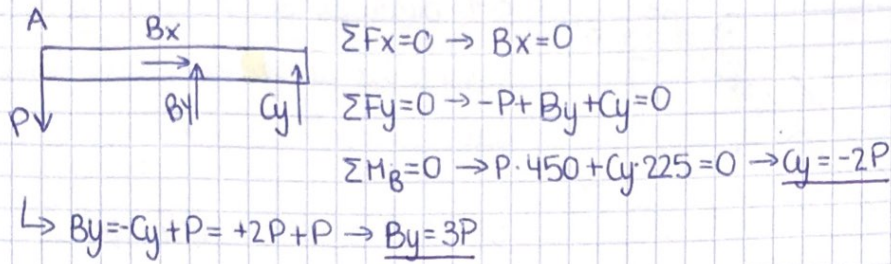 A
Bx
P
By
Cy
ΣFx=0 → Bx=0
ΣFy=0 → -P+By+Cy=0
ΣM_B=0 → P·450+Cy·225=0 → Cy=-2P
↳ By=-Cy+P= +2P+P → By=3P